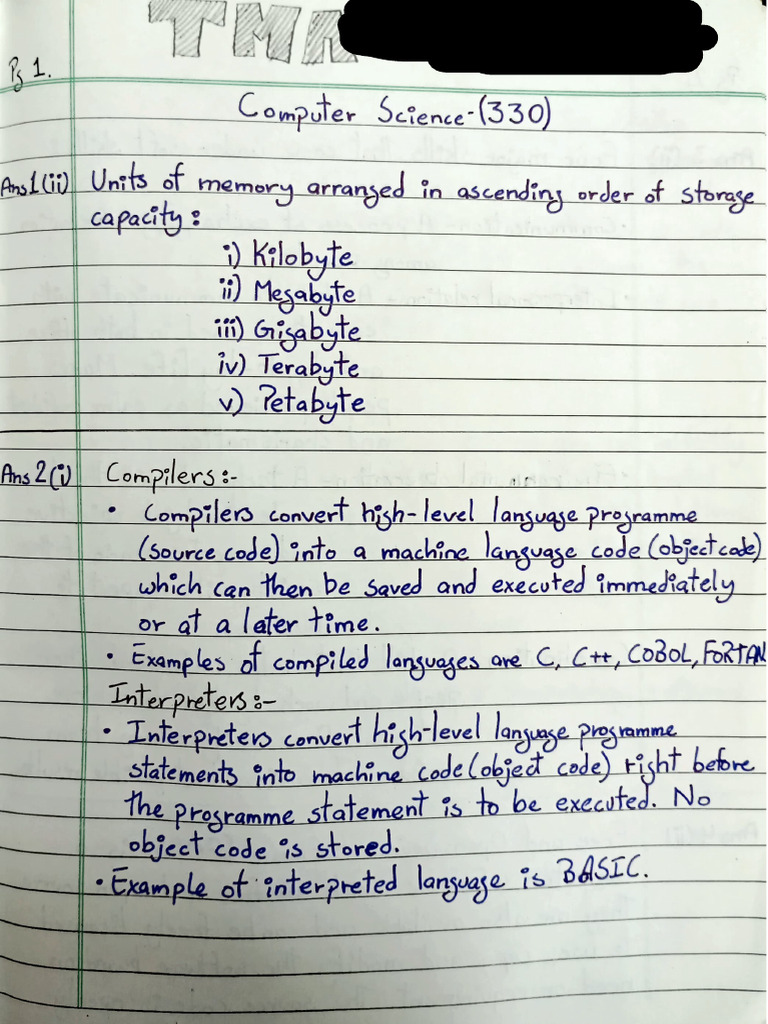 TMA
Pg 1.
Computer Science-(330)
Ans1(ii) Units of memory arranged in ascending order of storage
capacity:
i) Kilobyte
ii) Megabyte
iii) Gigabyte
iv) Terabyte
v) Petabyte
Ans2(i) Compilers:-
• Compilers convert high-level language programme
(source code) into a machine language code (object code)
which can then be saved and executed immediately
or at a later time.
• Examples of compiled languages are C, C++, COBOL, FORTAN
Interpreters:-
• Interpreters convert high-level language programme
statements into machine code (object code) right before
the programme statement is to be executed. No
object code is stored.
• Example of interpreted language is BASIC.